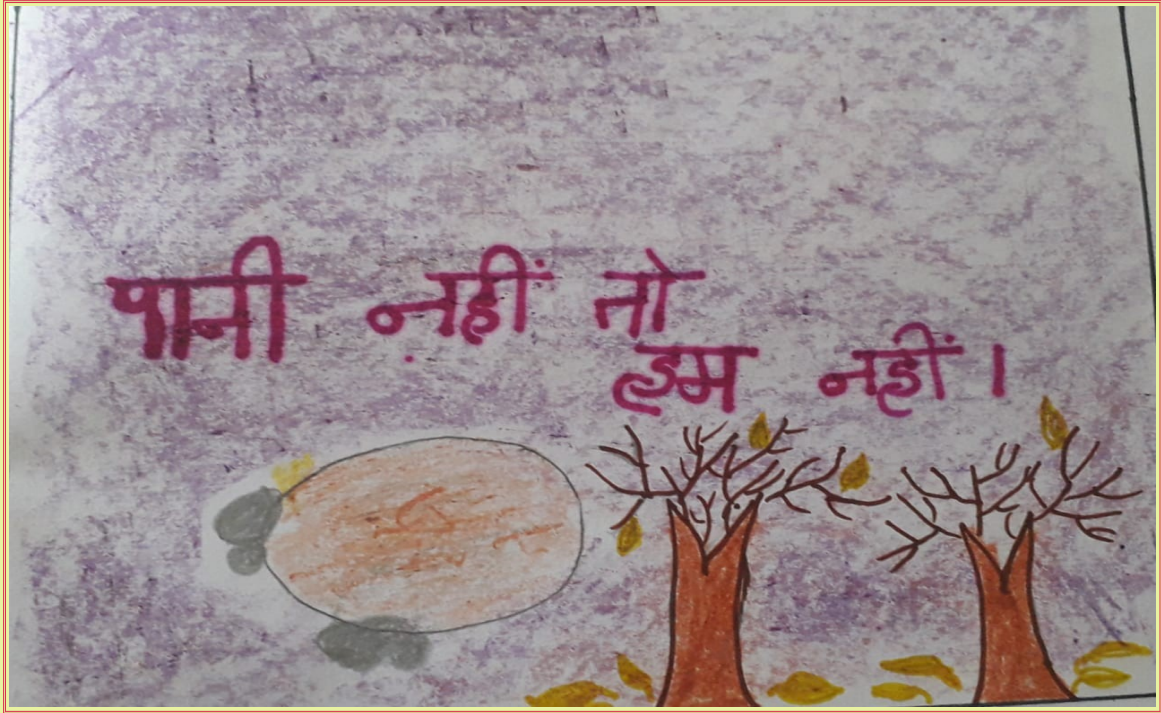 पानी नहीं तो
हम नहीं।